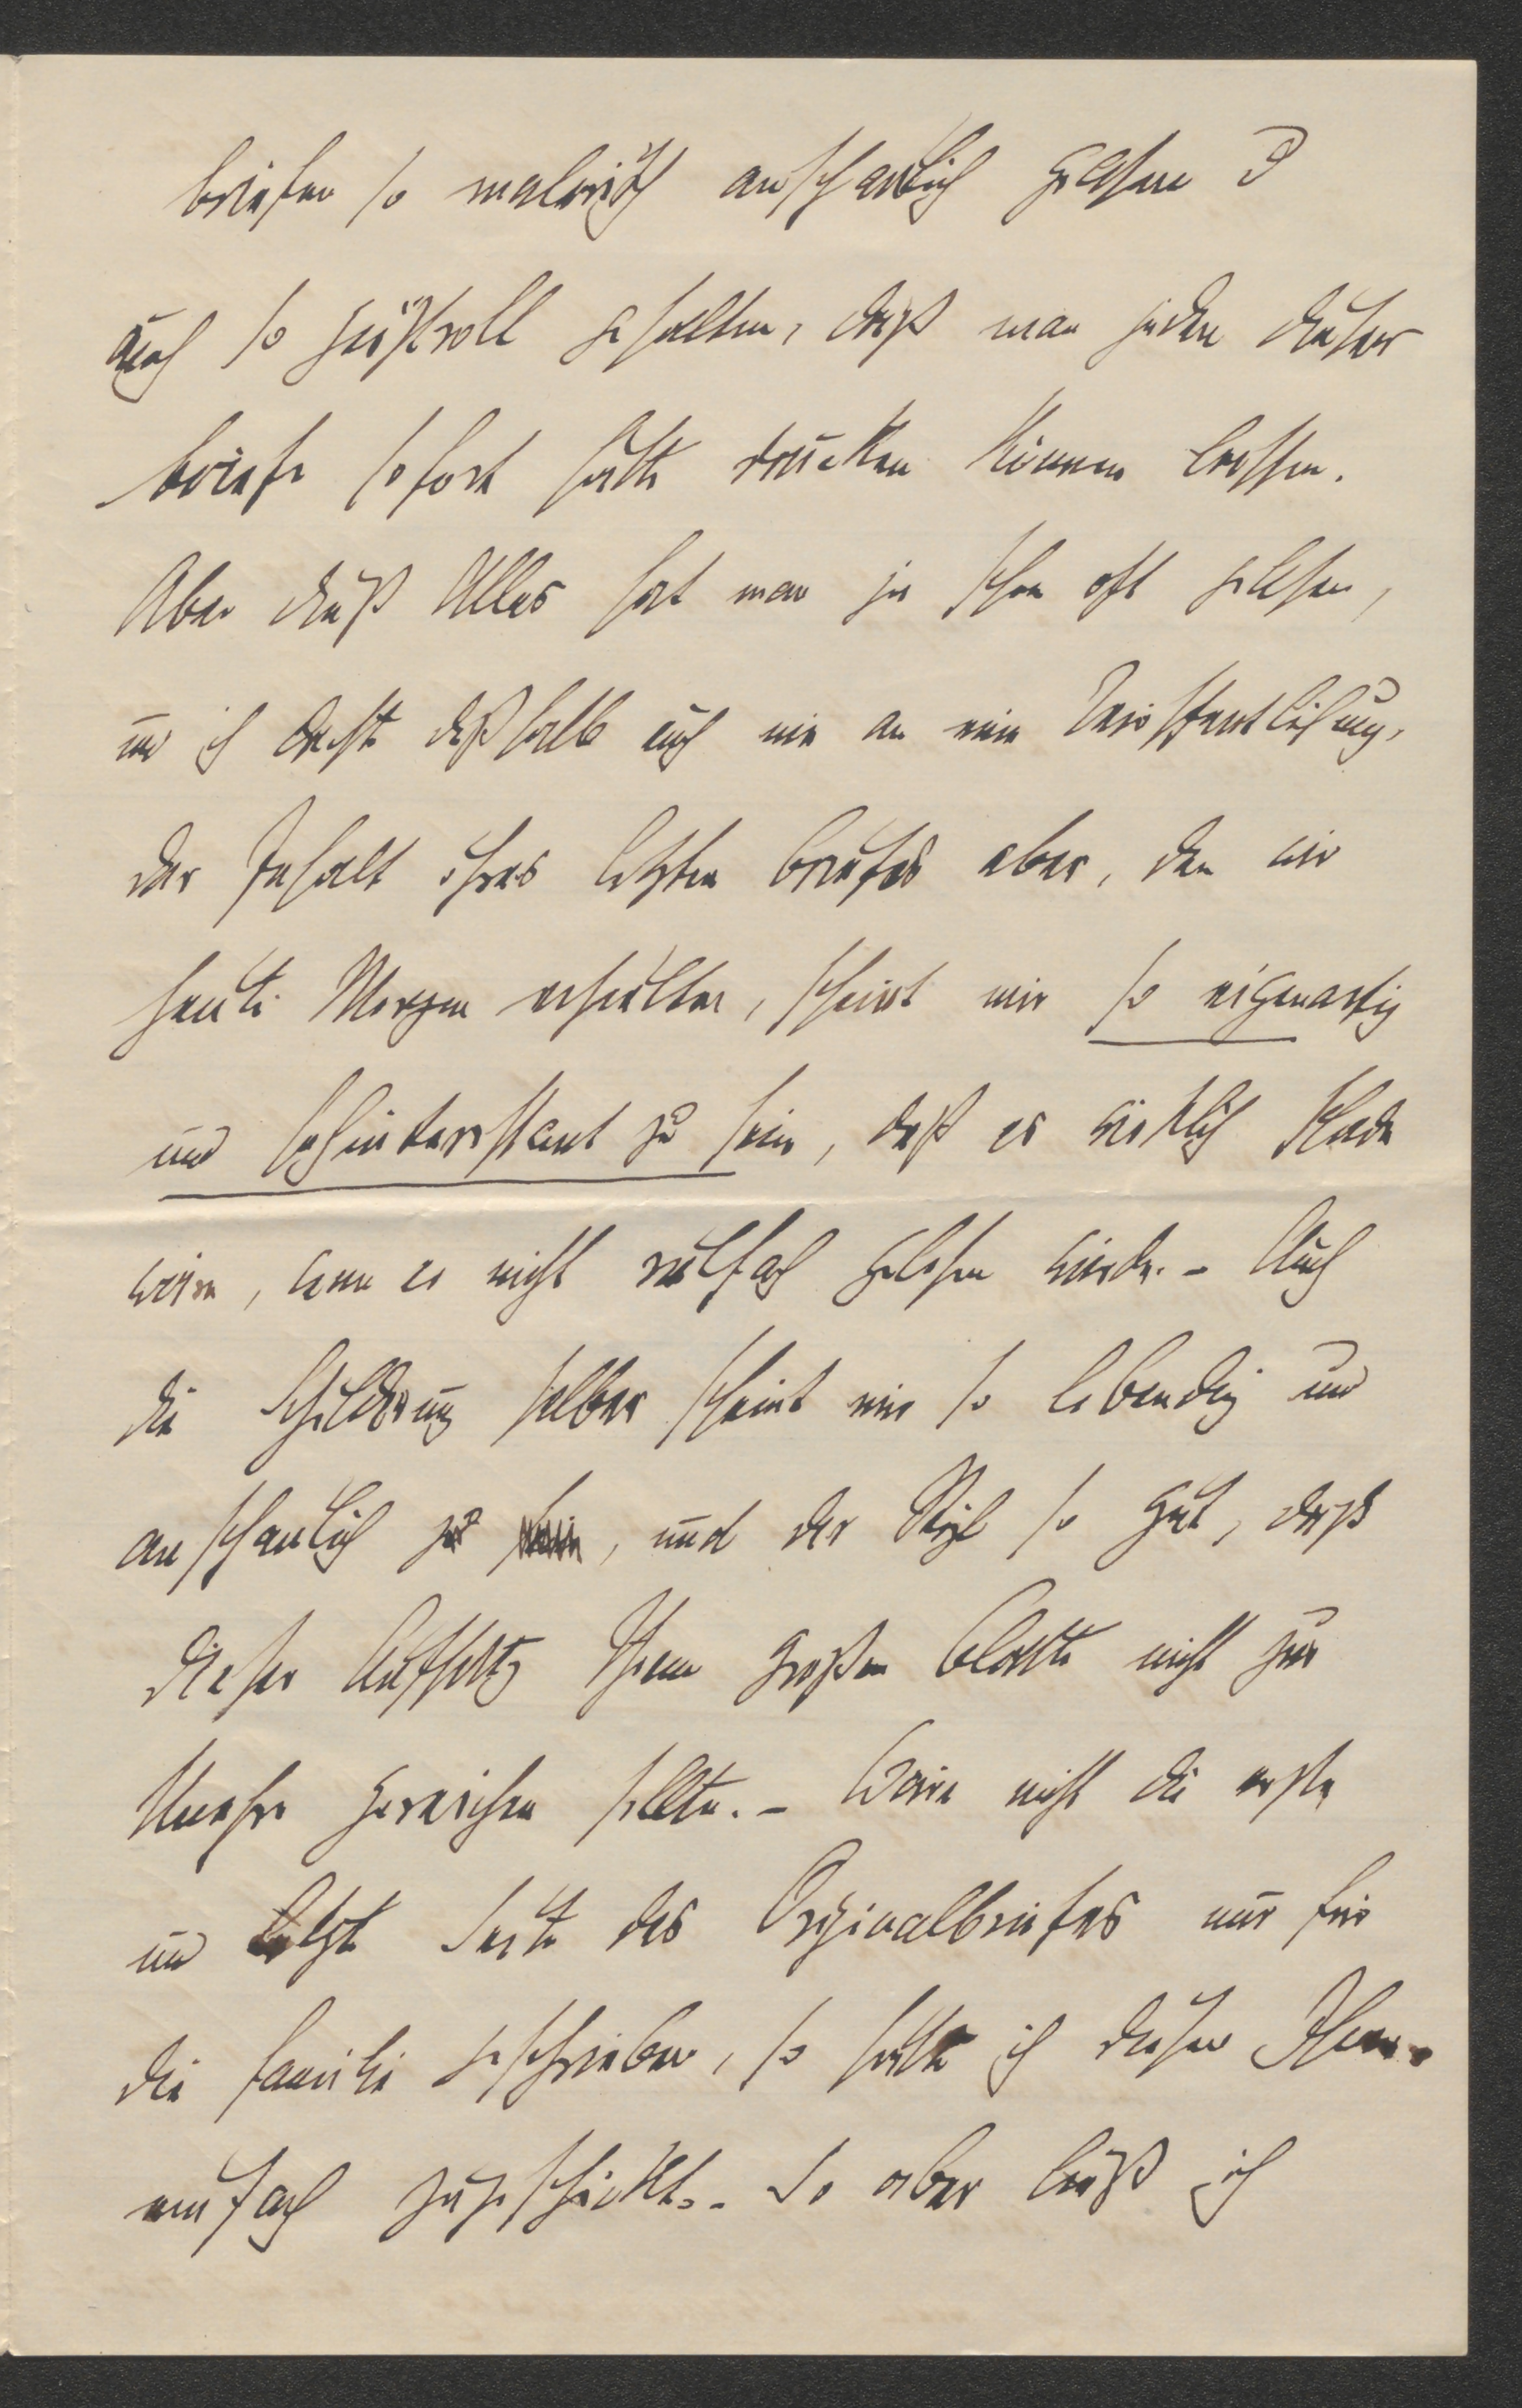 briefen so malerisch anschaulich gelesen &
auch so geistvoll gehalten, daß man jeden dieser
briefe sofort hätte drucken können lassen.
Aber dieß Alles hat man ja schon oft gelesen,
und ich dachte deßhalb auch nie an eine Veröffentlichung,
der Inhalt ihres letzten briefes aber, den wir
heute Morgen erhielten, scheint mir so eigenartig
und hochinteressant zu sein, daß es wirklich Schade
wäre, wenn er nicht vielfach gelesen würde. - Auch
die Schilderung selber scheint mir so lebendig und
anschaulich zu sein, und der Styl so gut, daß
dieser Aufsatz Ihrem großen Blatte nicht zur
Unehre gereichen sollte. - Wäre nicht die erste
und letzte Seite des Originalbriefes nur für
die Familie geschrieben, so hätte ich diesen Ihnen
einfach zugeschickt. - So aber ließ ich